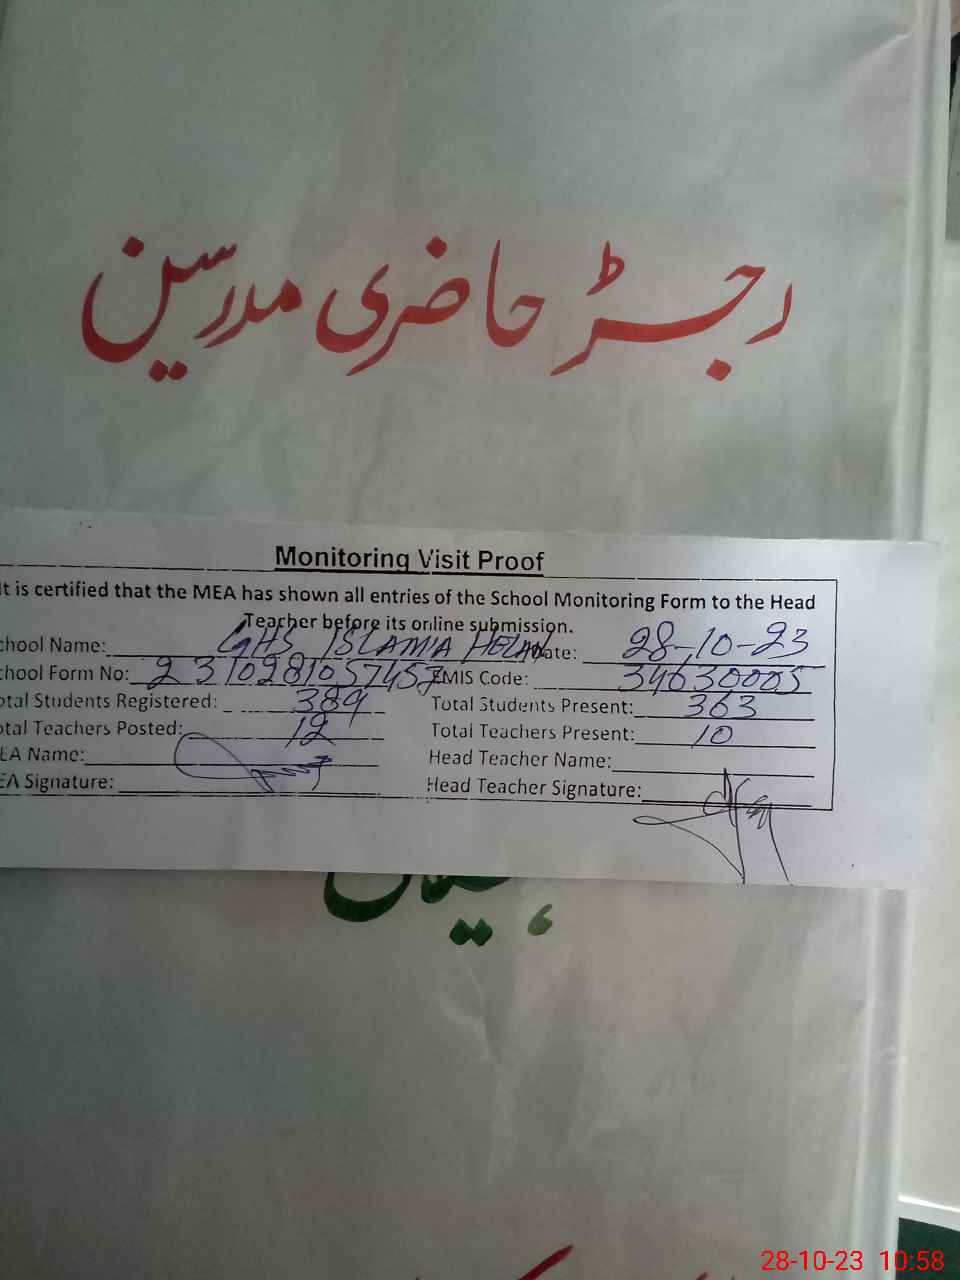 رجسٹر حاضری مدرسین
Monitoring Visit Proof
It is certified that the MEA has shown all entries of the School Monitoring Form to the Head
Teacher before its online submission.
chool Name: GHS ISLAMIA HELAN Date: 28-10-23
chool Form No: 2310281057457 EMIS Code: 34630005
otal Students Registered: 389 Total Students Present: 363
otal Teachers Posted: 12 Total Teachers Present: 10
EA Name: Head Teacher Name:
EA Signature: Head Teacher Signature:
ہیلاں
28-10-23 10:58